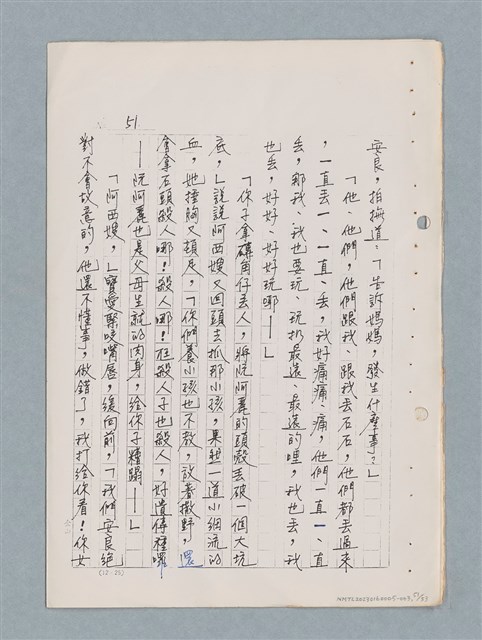 51
安良，拍撫道：「告訴媽媽，發生什麼事？」
「他、他們，他們跟我、跟我丟石石，他們都丟過來
，一直丟、一直、丟，我好痛痛、痛，他們一直一、直
丟，那我、我也要玩、玩扔最遠、最遠的哩，我也丟，我
也丟，好好、好好玩哪——」
「你子拿磚角仔丟人，將阮阿麗的頭殼丟破一個大坑
底，」說說阿西嫂又回頭去抓那小孩，果然一道小細流的
血，她捶胸又頓足，「你們養小孩也不教，放著撒野，還
會拿石頭殺人哪！殺人哪！在殺人子也殺人，好遺傳種囉
——阮阿麗也是父母生就的肉身，給你子糟蹋——」
「阿西嫂，」寶愛緊咬嘴唇，緩向前，「我們安良絕
對不會故意的，他還不懂事，做錯了，我打給你看！你女
(12×25)